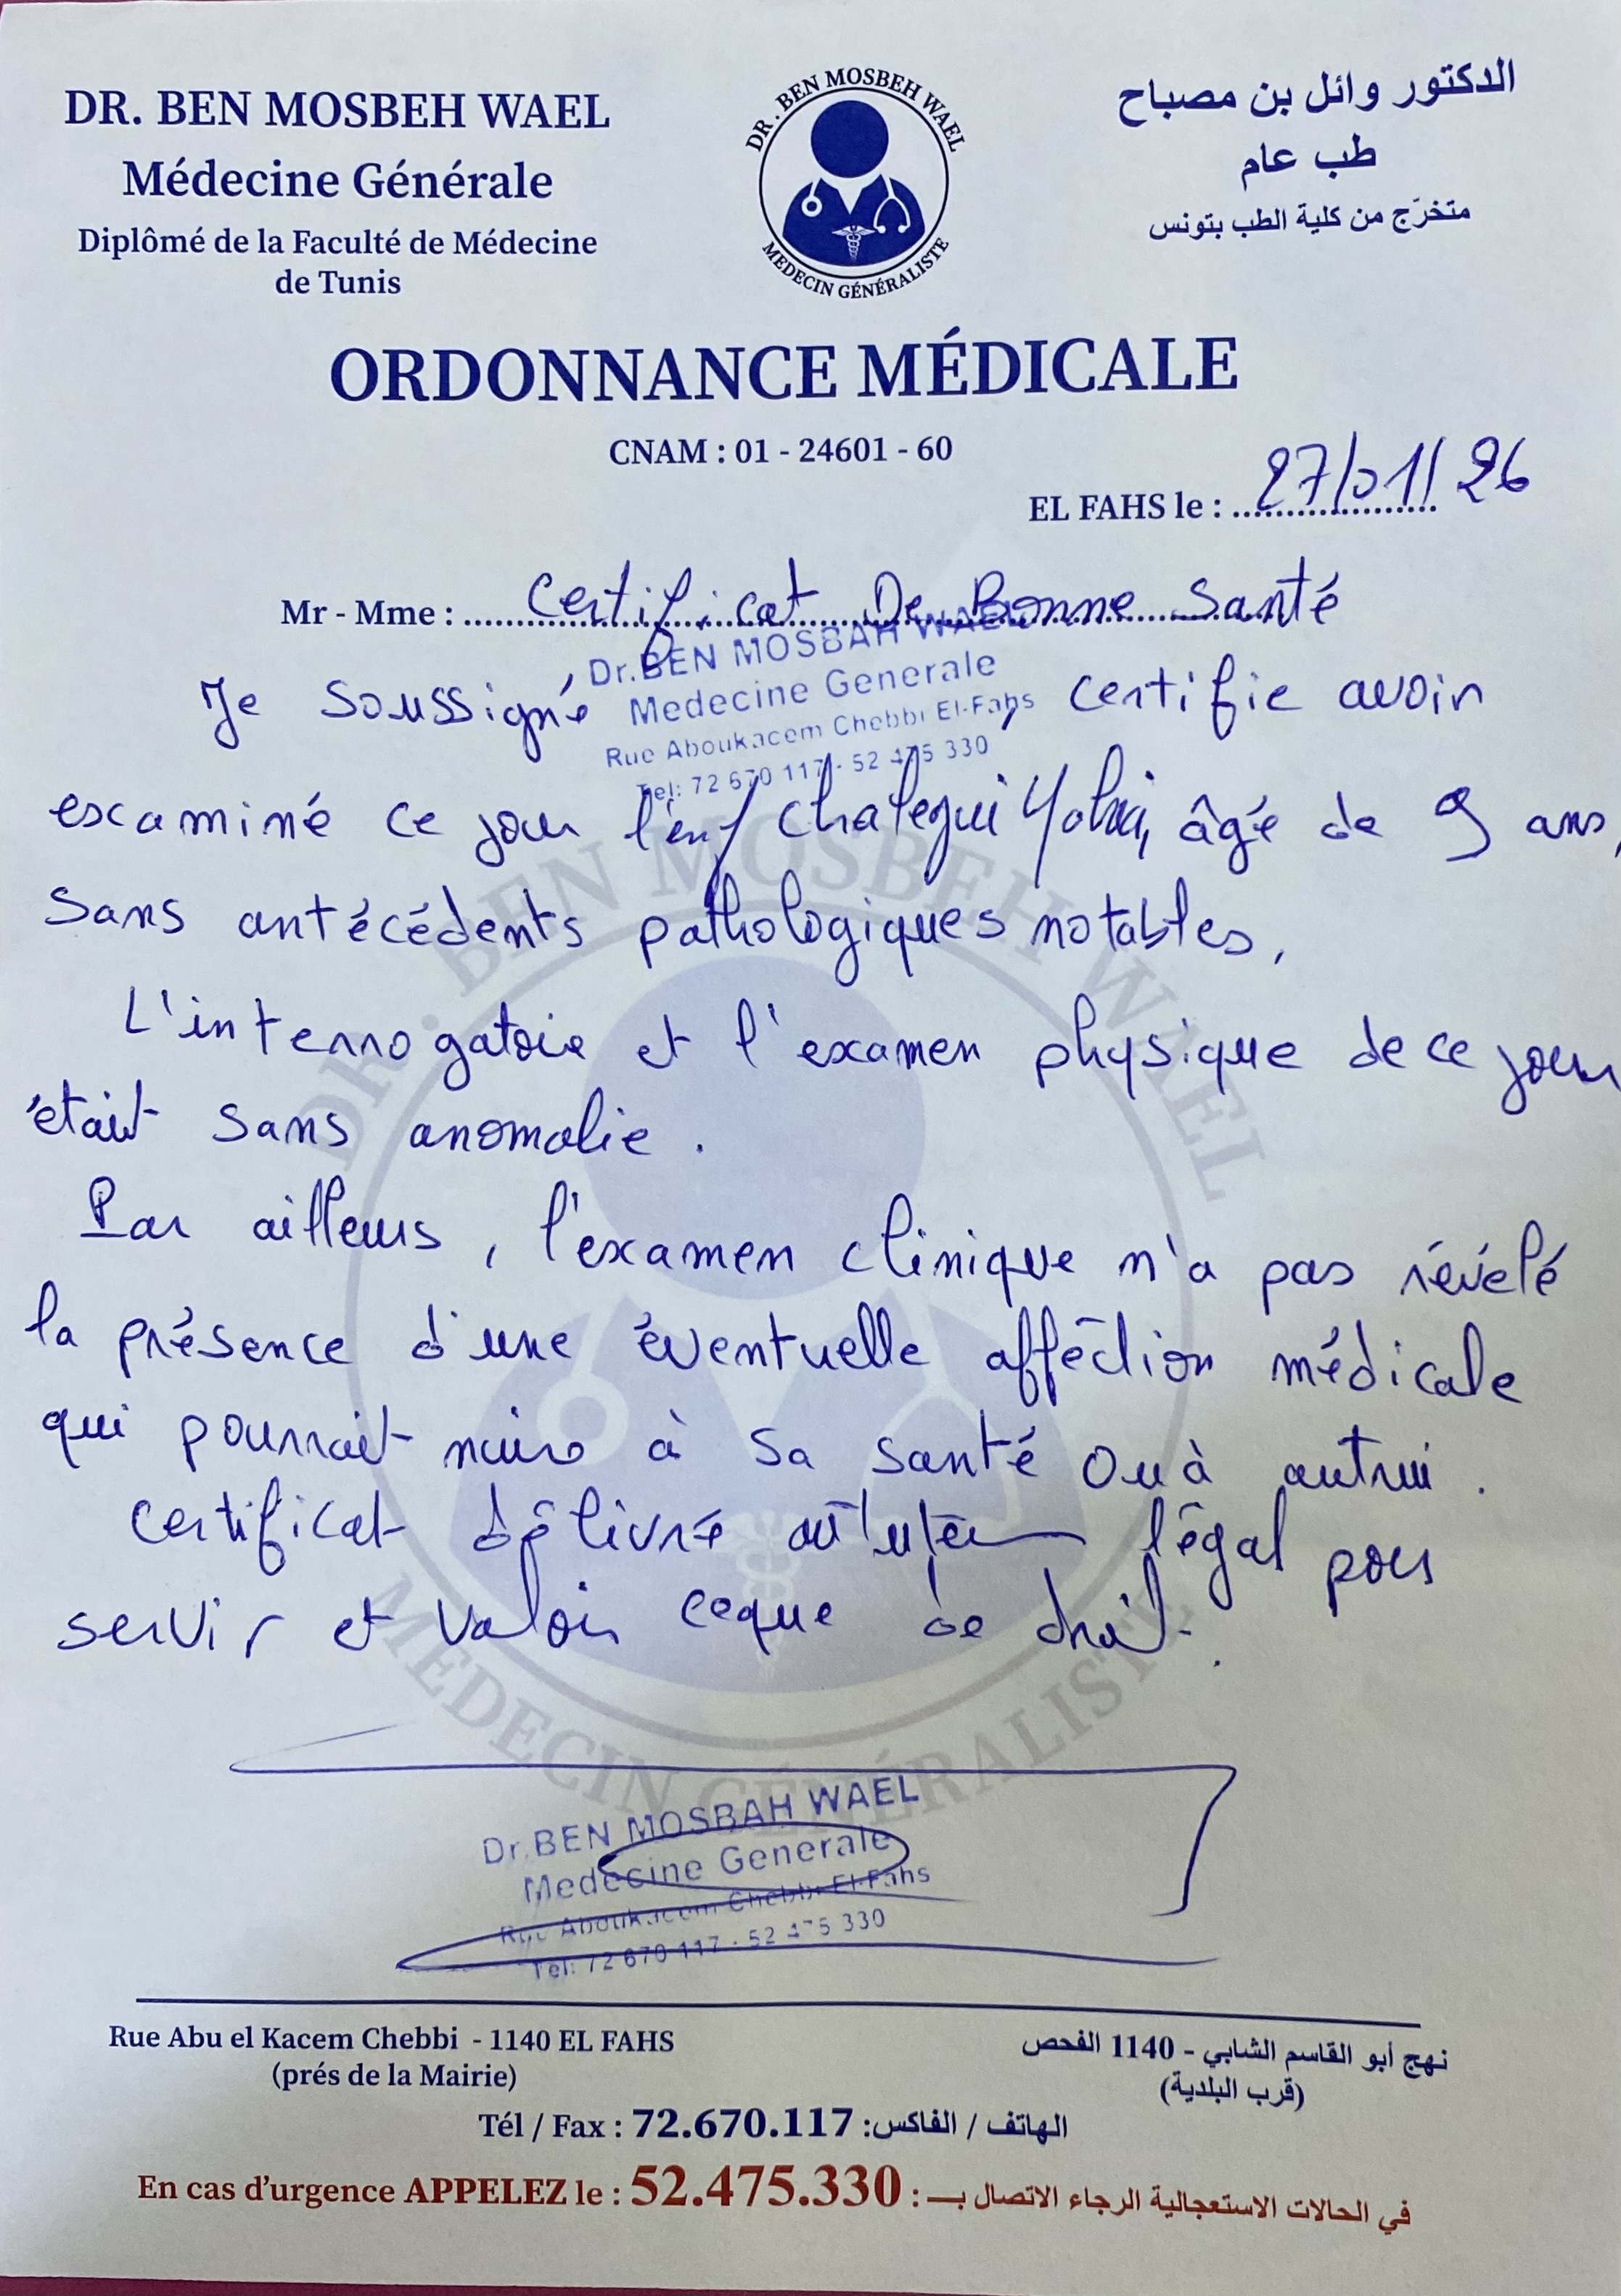 DR. BEN MOSBEH WAEL
Médecine Générale
Diplômé de la Faculté de Médecine
de Tunis
DR. BEN MOSBEH WAEL
MEDECIN GÉNÉRALISTE
الدكتور وائل بن مصباح
طب عام
متخرّج من كلية الطب بتونس
ORDONNANCE MÉDICALE
CNAM : 01 - 24601 - 60
EL FAHS le : 27/01/26
Mr - Mme : Certificat De Bonne Santé
Dr. BEN MOSBAH WAEL
Medecine Generale
Rue Aboukacem Chebbi El-Fahs
Tel: 72 670 117 - 52 475 330
Je soussigné, certifie avoir
examiné ce jour l'enf âgé de 9 ans,
sans antécédents pathologiques notables,
L'interrogatoire et l'examen physique de ce jour
était sans anomalie.
Par ailleurs, l'examen clinique n'a pas révélé
la présence d'une éventuelle affection médicale
qui pourrait nuire à sa santé ou à autrui.
Certificat délivré au tuteur légal pour
servir et valoir ce que de droit.
DR. BEN MOSBEH WAEL
MEDECIN GÉNÉRALISTE
Dr. BEN MOSBAH WAEL
Medecine Generale
Rue Aboukacem Chebbi El-Fahs
Tel: 72 670 117 - 52 475 330
Rue Abu el Kacem Chebbi - 1140 EL FAHS
(prés de la Mairie)
نهج أبو القاسم الشابي - 1140 الفحص
(قرب البلدية)
Tél / Fax : 72.670.117 :الهاتف / الفاكس
En cas d'urgence APPELEZ le : 52.475.330 : في الحالات الاستعجالية الرجاء الاتصال بـ